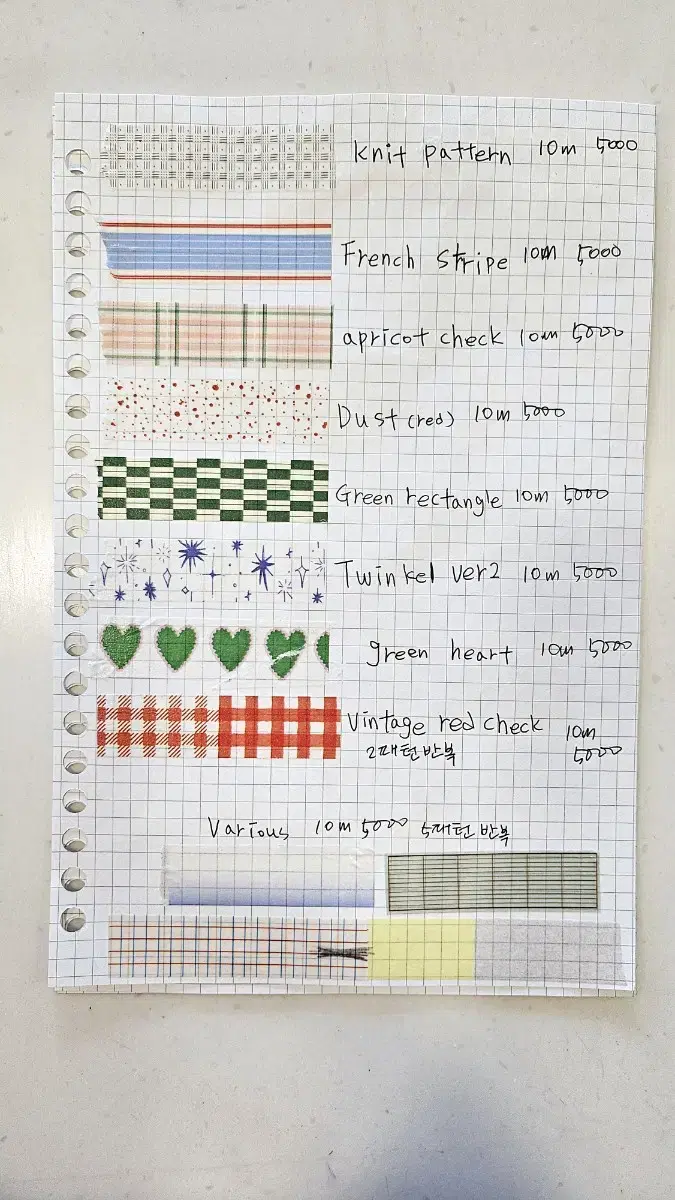 knit pattern 10m 5000
French stripe 10m 5000
apricot check 10m 5000
Dust (red) 10m 5000
Green rectangle 10m 5000
Twinkel ver2 10m 5000
green heart 10m 5000
Vintage red check 10m
2패턴반복 5000
Various 10m 5000 5패턴반복